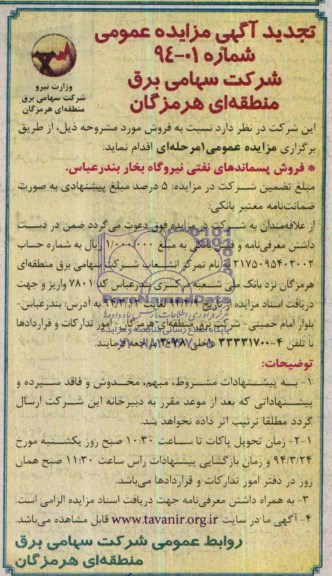 تجدید آگهی مزایده عمومی
شماره ۰۱-۹۴
شرکت سهامی برق
منطقه‌ای هرمزگان
وزارت نیرو
شرکت سهامی برق
منطقه‌ای هرمزگان
این شرکت در نظر دارد نسبت به فروش مورد مشروحه ذیل، از طریق
برگزاری مزایده عمومی ۱ مرحله‌ای اقدام نماید.
* فروش پسماندهای نفتی نیروگاه بخار بندرعباس.
مبلغ تضمین شرکت در مزایده: ۵ درصد مبلغ پیشنهادی به صورت
ضمانت‌نامه معتبر بانکی.
از علاقه‌مندان به شرکت در مزایده فوق دعوت می‌گردد ضمن در دست
داشتن معرفی‌نامه و فیش بانکی به مبلغ ۱/۰۰۰/۰۰۰ ریال به شماره حساب
۲۱۷۵۰۹۵۴۰۲۰۰۲ بنام تمرکز انشعاب شرکت سهامی برق منطقه‌ای
هرمزگان نزد بانک ملی شعبه مرکزی بندرعباس کد ۷۸۰۱ واریز و جهت
دریافت اسناد مزایده از تاریخ لغایت به آدرس: بندرعباس-
بلوار امام خمینی- شرکت برق منطقه‌ای هرمزگان- امور تدارکات و قراردادها
با تلفن ۴-۳۳۳۳۱۷۰۰ داخلی مراجعه فرمایند.
توضیحات:
۱- به پیشنهادات مشروط، مبهم، مخدوش و فاقد سپرده و
پیشنهاداتی که بعد از موعد مقرر به دبیرخانه این شرکت ارسال
گردد مطلقا ترتیب اثر داده نخواهد شد.
۲-۱- زمان تحویل پاکات تا ساعت ۱۰:۳۰ صبح روز یکشنبه مورخ
۹۴/۳/۲۴ و زمان بازگشایی پیشنهادات راس ساعت ۱۱:۳۰ صبح همان
روز در دفتر امور تدارکات و قراردادها می‌باشد.
۳- به همراه داشتن معرفی‌نامه جهت دریافت اسناد مزایده الزامی است.
۴- آگهی ما در سایت www.tavanir.org.ir قابل مشاهده می‌باشد.
روابط عمومی شرکت سهامی برق
منطقه‌ای هرمزگان